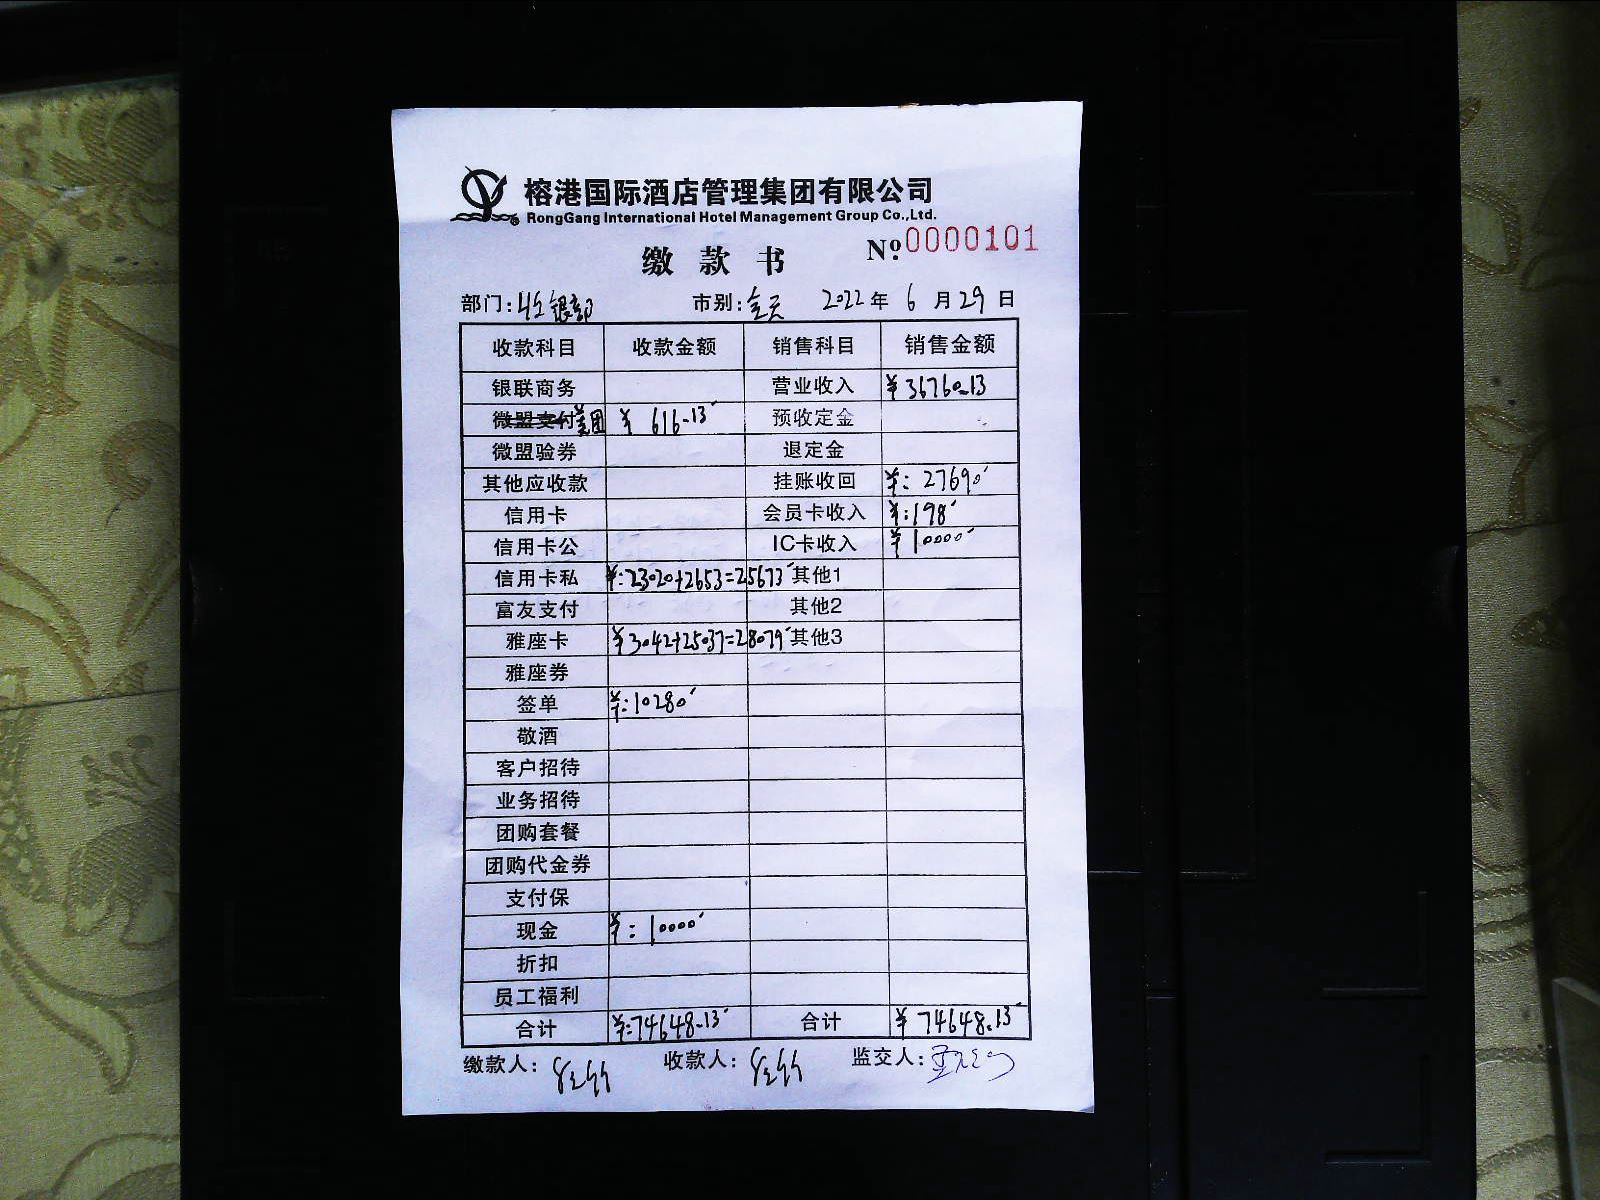 榕港国际酒店管理集团有限公司
RongGang International Hotel Management Group Co.,Ltd.
缴款书 Nº 0000101
部门: 收银部 市别: 全天 2022年 6月 29日
收款科目 收款金额 销售科目 销售金额
银联商务 营业收入 ¥36760.13
微盟支付 美团 ¥ 616.13 预收定金
微盟验券 退定金
其他应收款 挂账收回 ¥: 27690
信用卡 会员卡收入 ¥:198
信用卡公 IC卡收入 ¥10000
信用卡私 ¥:23020+2653=25673 其他1
富友支付 其他2
雅座卡 ¥3042+25037=28079 其他3
雅座券
签单 ¥:10280
敬酒
客户招待
业务招待
团购套餐
团购代金券
支付保
现金 ¥: 10000
折扣
员工福利
合计 ¥:74648.13 合计 ¥74648.13
缴款人: 收款人: 监交人: